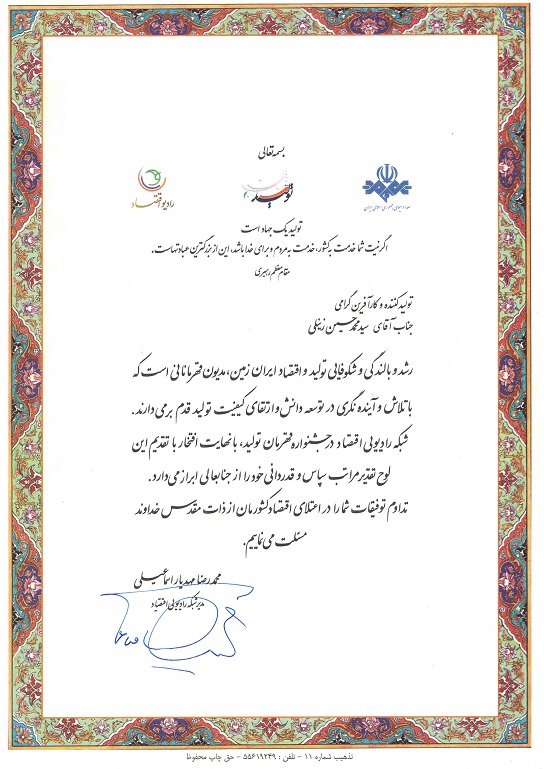 بسمه تعالی
رادیو اقتصاد
تولید
تولید یک جهاد است
اگر نیت شما خدمت به کشور، خدمت به مردم و برای خدا باشد، این از بزرگترین عبادتهاست.
مقام معظم رهبری
تولید کننده و کارآفرین گرامی
جناب آقای سید محمد حسین زینلی
رشد و بالندگی و شکوفایی تولید و اقتصاد ایران زمین، مدیون قهرمانانی است که
با تلاش و آینده نگری در توسعه دانش و ارتقای کیفیت تولید قدم برمی دارند.
شبکه رادیویی اقتصاد در جشنواره قهرمان تولید، با نهایت افتخار با تقدیم این
لوح تقدیر مراتب سپاس و قدردانی خود را از جنابعالی ابراز می دارد.
تداوم توفیقات شما را در اعتلای اقتصاد کشورمان از ذات مقدس خداوند
مسئلت می نماییم.
محمد رضا مهدیار اسماعیلی
مدیر شبکه رادیویی اقتصاد
تذهیب شماره ۱۱ - تلفن : ۵۵۶۱۹۲۴۹ - حق چاپ محفوظ